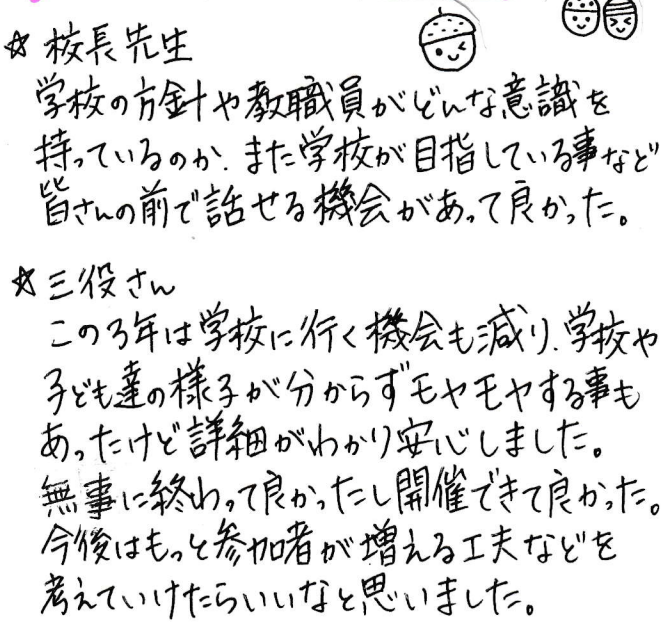 ☆ 校長先生
学校の方針や教職員がどんな意識を
持っているのか、また学校が目指している事など
皆さんの前で話せる機会があって良かった。
☆ 三役さん
この3年は学校に行く機会も減り、学校や
子ども達の様子が分からずモヤモヤする事も
あったけど詳細がわかり安心しました。
無事に終わって良かったし開催できて良かった。
今後はもっと参加者が増える工夫などを
考えていけたらいいなと思いました。